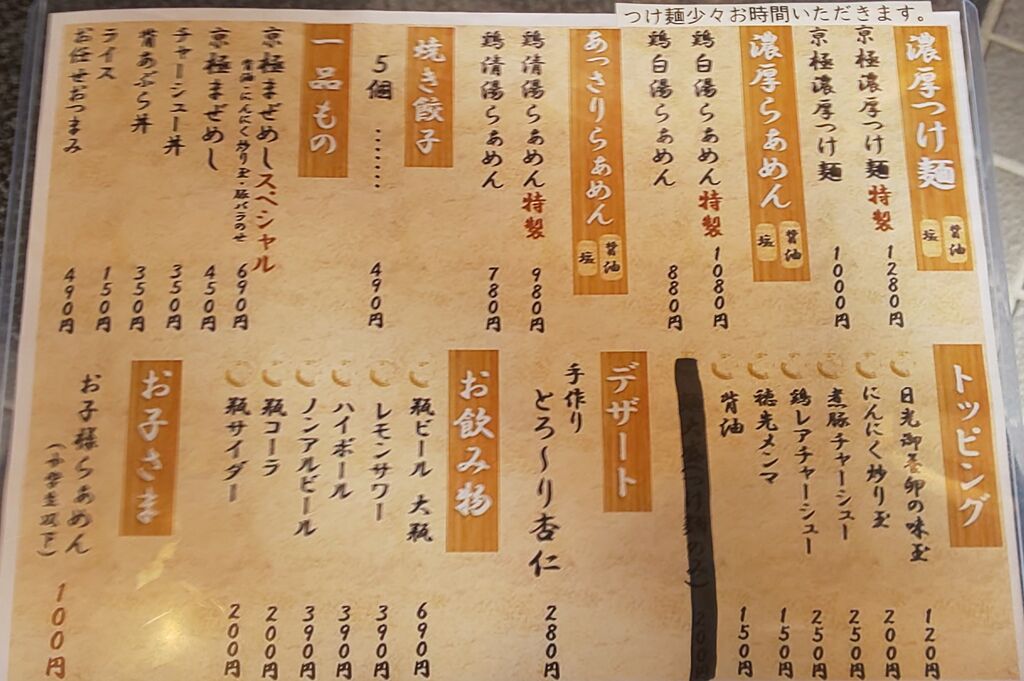 つけ麺少々お時間いただきます。
濃厚つけ麺
醤油
塩
京極濃厚つけ麺 特製 1280円
京極濃厚つけ麺 1000円
濃厚らぁめん
醤油
塩
鶏白湯らぁめん 特製 1080円
鶏白湯らぁめん 880円
あっさりらぁめん
醤油
塩
鶏清湯らぁめん 特製 980円
鶏清湯らぁめん 780円
焼き餃子
5個 ‥‥‥ 490円
一品もの
京極まぜめしスペシャル 690円
背油・にんにく炒り玉・豚バラのせ
京極まぜめし 450円
チャーシュー丼 350円
背あぶら丼 350円
ライス 150円
お任せおつまみ 490円
トッピング
日光御養卵の味玉 120円
にんにく炒り玉 200円
煮豚チャーシュー 250円
鶏レアチャーシュー 250円
穂先メンマ 150円
背油 150円
デザート
手作り
とろ〜り杏仁 280円
お飲み物
瓶ビール 大瓶 690円
レモンサワー 390円
ハイボール 390円
ノンアルビール 390円
瓶コーラ 200円
瓶サイダー 200円
お子さま
お子様らぁめん 100円
(小学生以下)